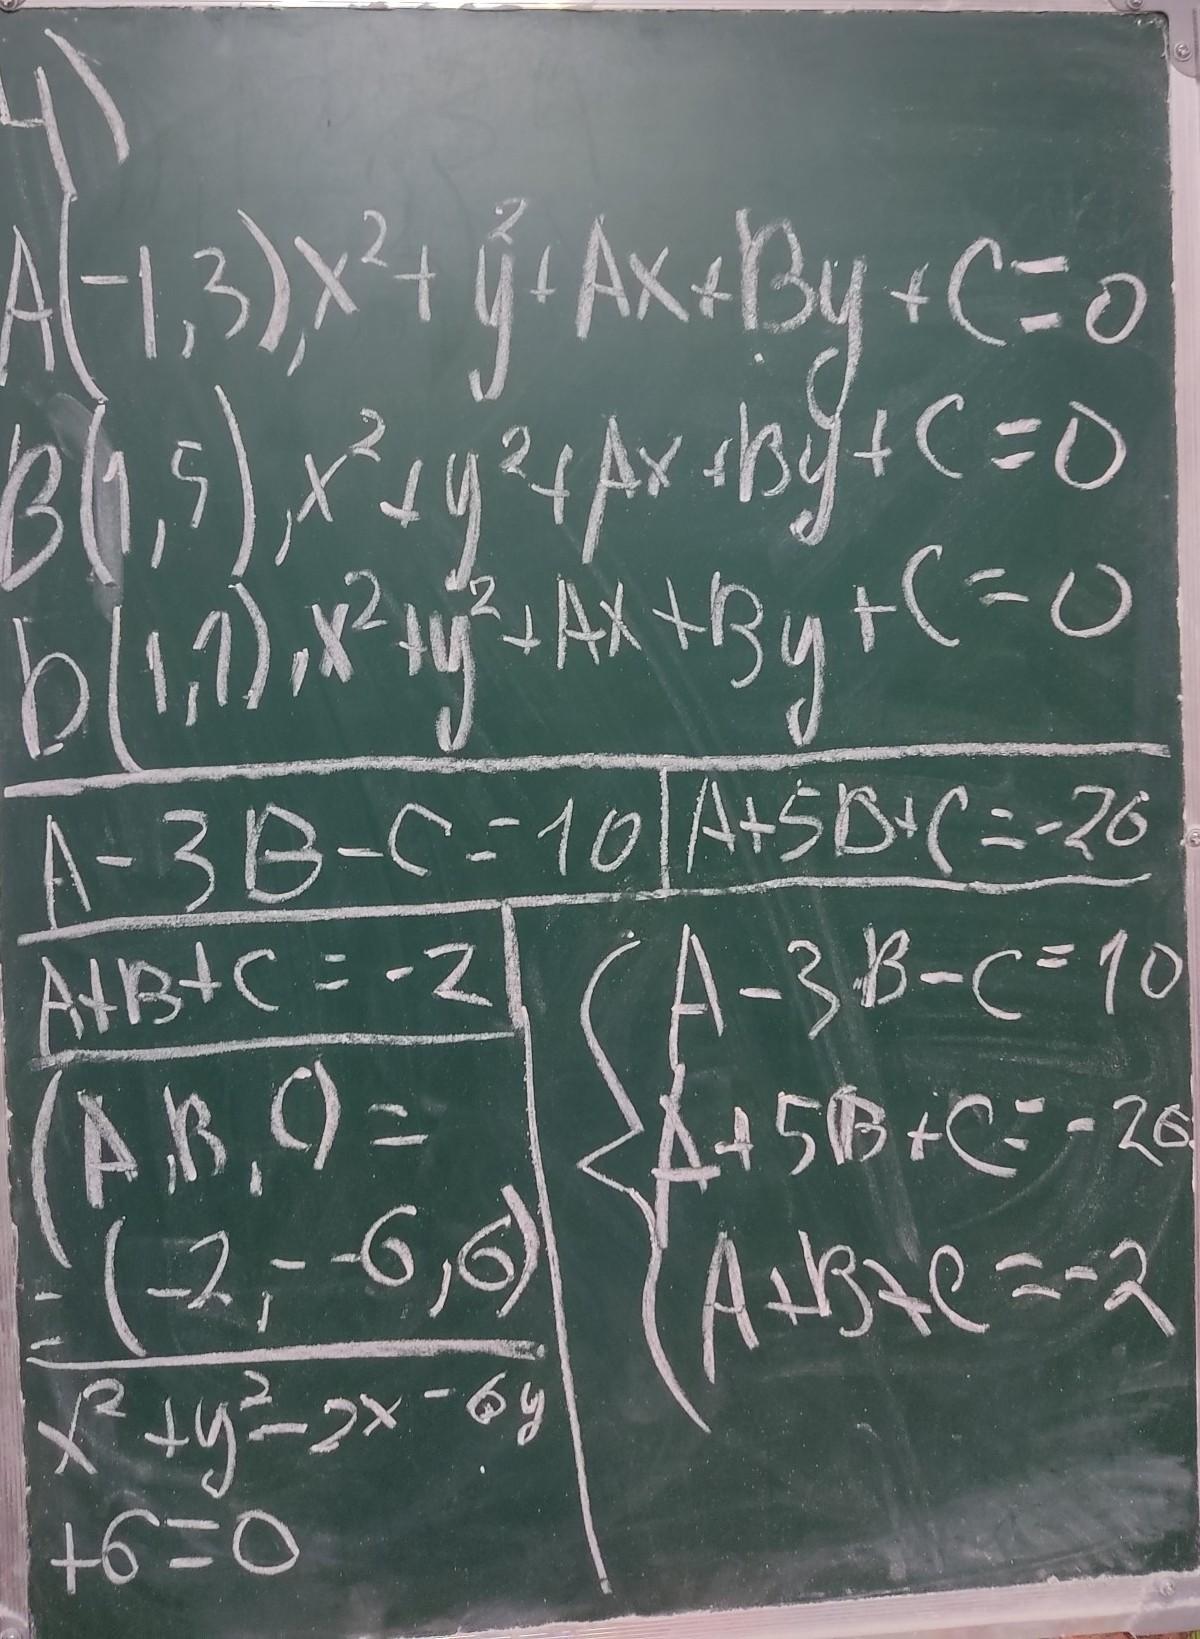 4)
A(-1,3), x²+y²+Ax+By+C=0
B(1,5), x²+y²+Ax+By+C=0
b(1,1), x²+y²+Ax+By+C=0
A-3B-C=10 | A+5B+C=-26
A+B+C=-2
(A,B,C)=
=(-2,--6,6)
x²+y²-2x-6y
+6=0
A-3B-C=10
A+5B+C=-26
A+B+C=-2